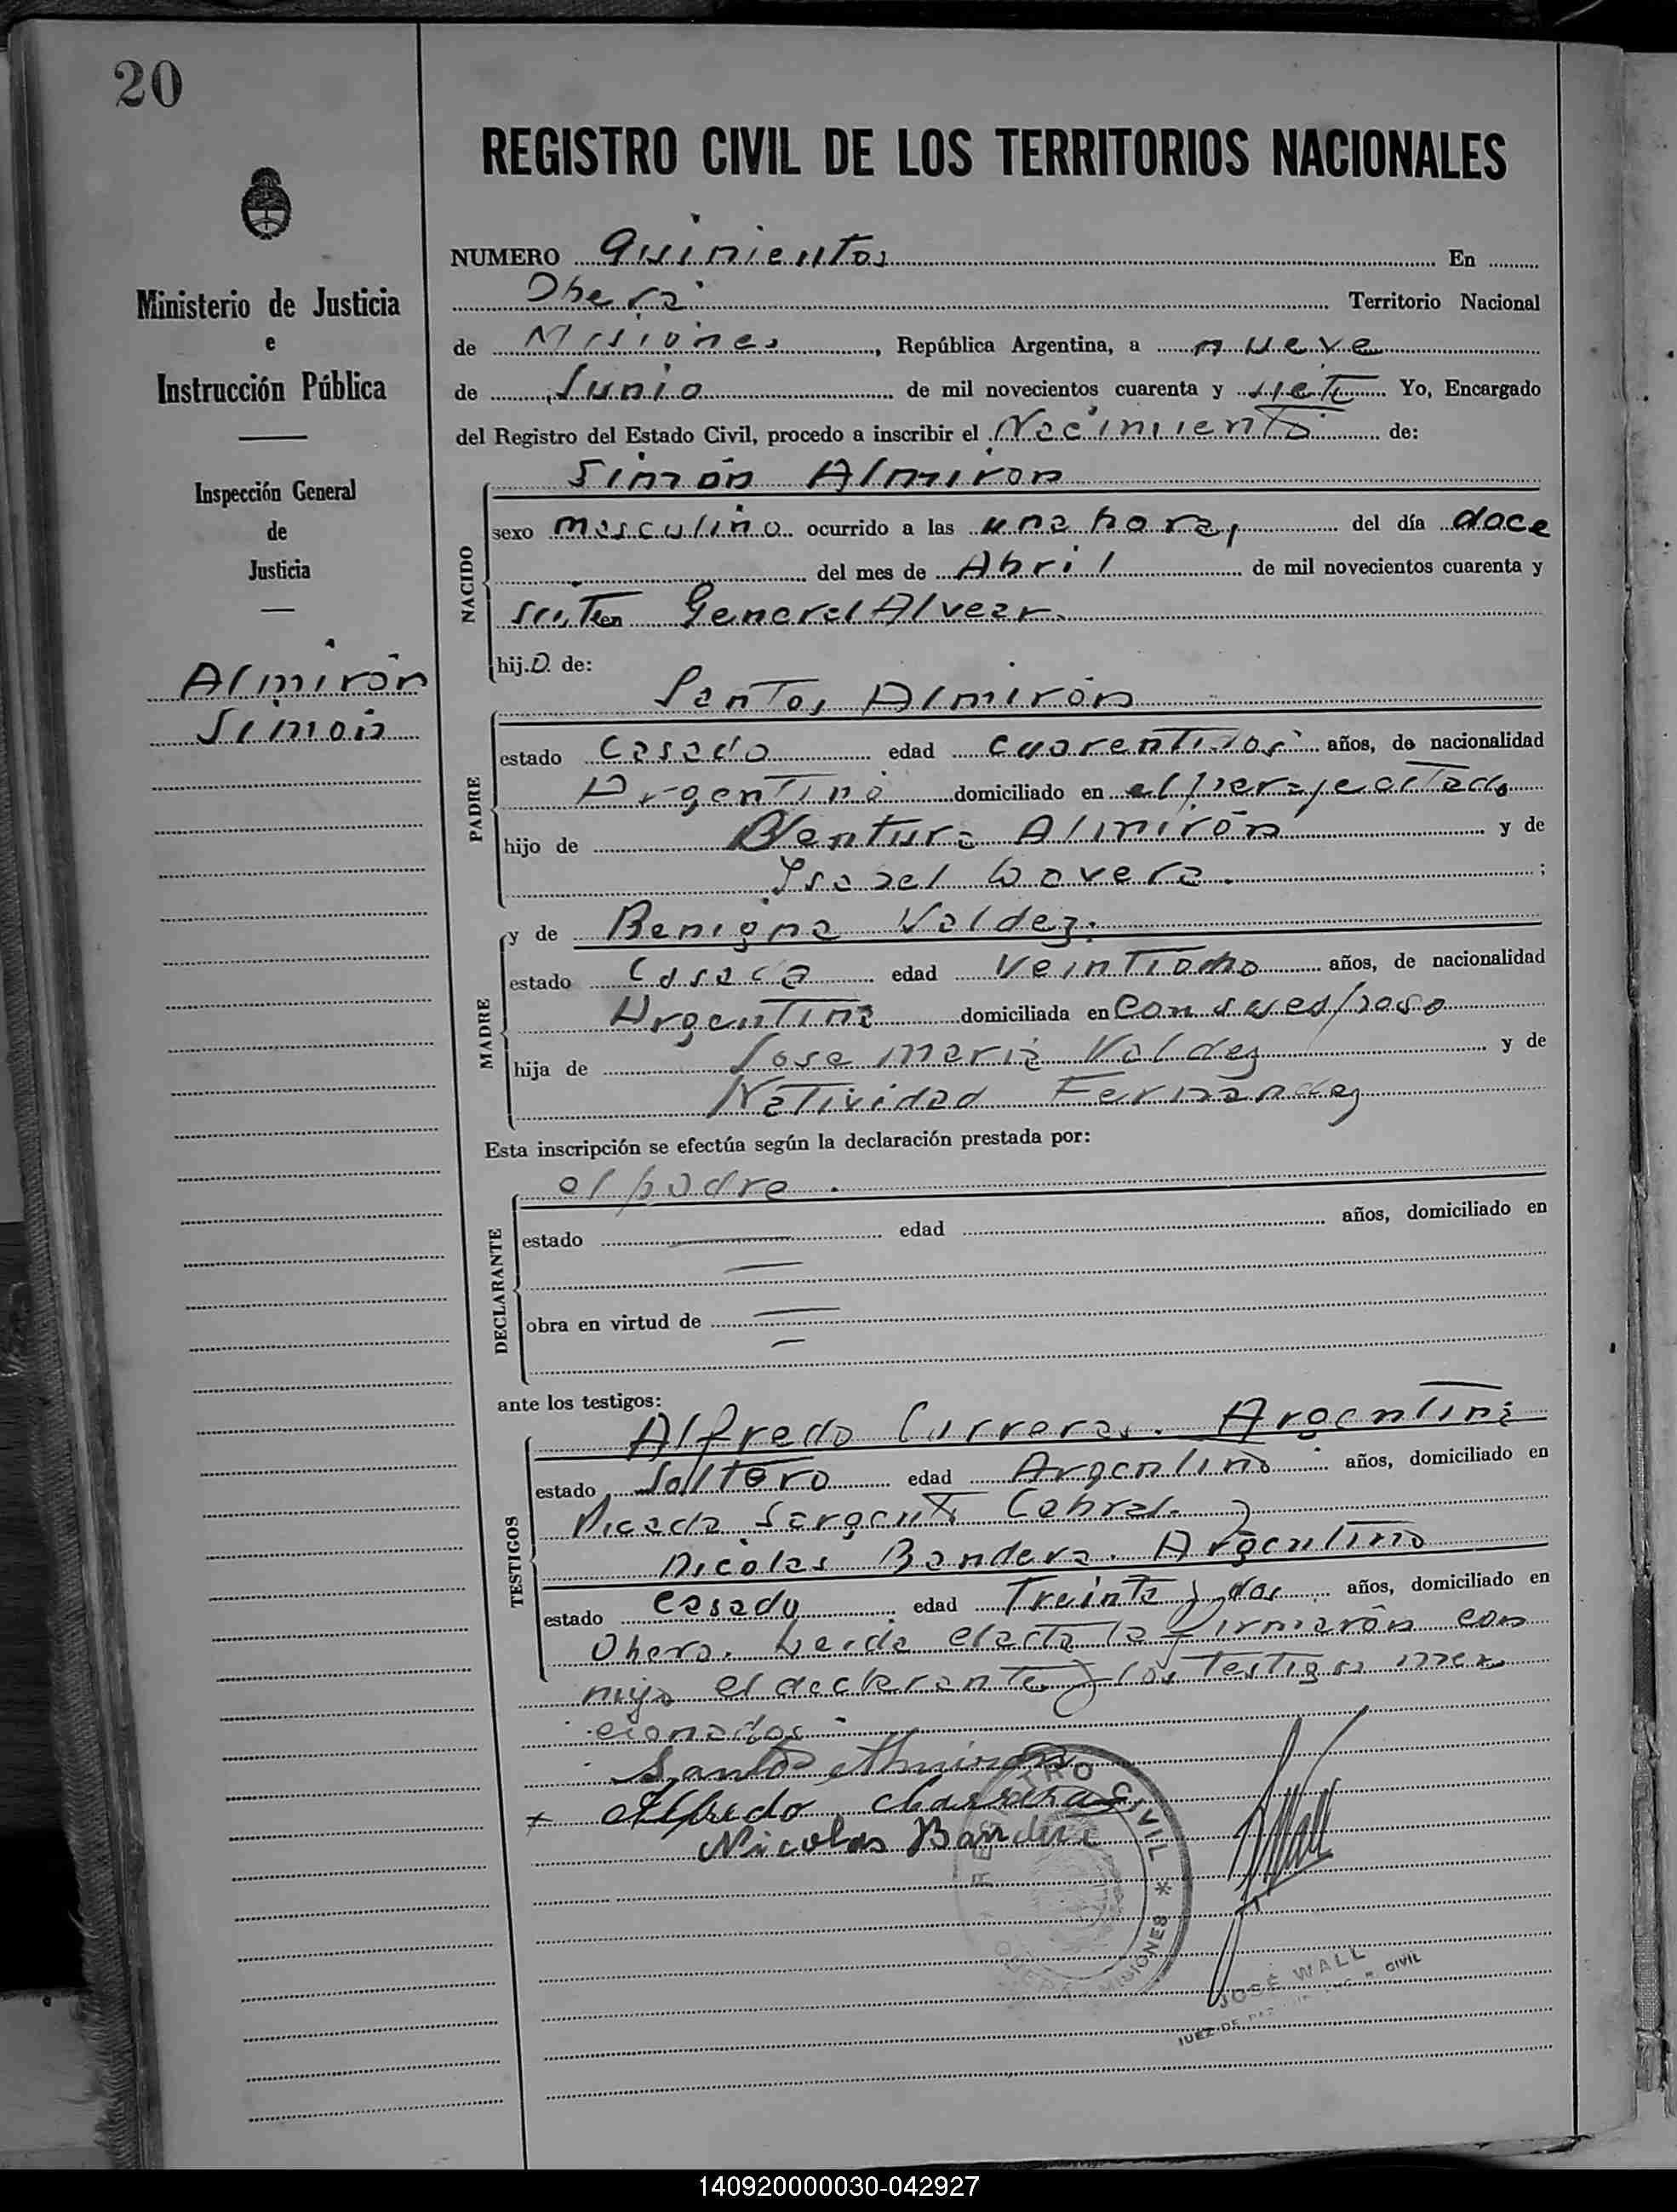 20
REGISTRO CIVIL DE LOS TERRITORIOS NACIONALES
Ministerio de Justicia
e
Instrucción Pública
Inspección General
de
Justicia
Almirón
Simón
NUMERO Quinientos En
Oberá Territorio Nacional
de Misiones, República Argentina, a nueve
de Junio de mil novecientos cuarenta y siete Yo, Encargado
del Registro del Estado Civil, procedo a inscribir el Nacimiento de:
NACIDO
Simón Almiron
sexo masculino ocurrido a las una hora, del día doce
del mes de Abril de mil novecientos cuarenta y
siete, en General Alvear.
hijo de:
PADRE
Santos Almirón
estado Casado edad cuarentidos años, de nacionalidad
Argentino domiciliado en el paraje citado
hijo de Ventura Almirón y de
Isabel Lovera. ;
MADRE
y de Benigna Valdez.
estado Casada edad Veintiocho años, de nacionalidad
Argentina domiciliada en con su esposo
hija de Jose Maria Valdez y de
Natividad Fernandez
Esta inscripción se efectúa según la declaración prestada por:
DECLARANTE
el padre.
estado edad años, domiciliado en
obra en virtud de
ante los testigos:
TESTIGOS
Alfredo Carreras. Argentino
estado Soltero edad Argentino años, domiciliado en
Picada Sargento Cabral. y
Nicolas Bandera. Argentino
estado casado edad Treinta y dos años, domiciliado en
Obera. Leida el acta la firmarón con
migo el declarante y los Testigos men
cionados.
Santos Almiron
Alfredo Carreras
Nicolas Bandera
REGISTRO CIVIL * OBERA MISIONES *
JOSÉ WALL
JUEZ DE PAZ CIVIL
140920000030-042927